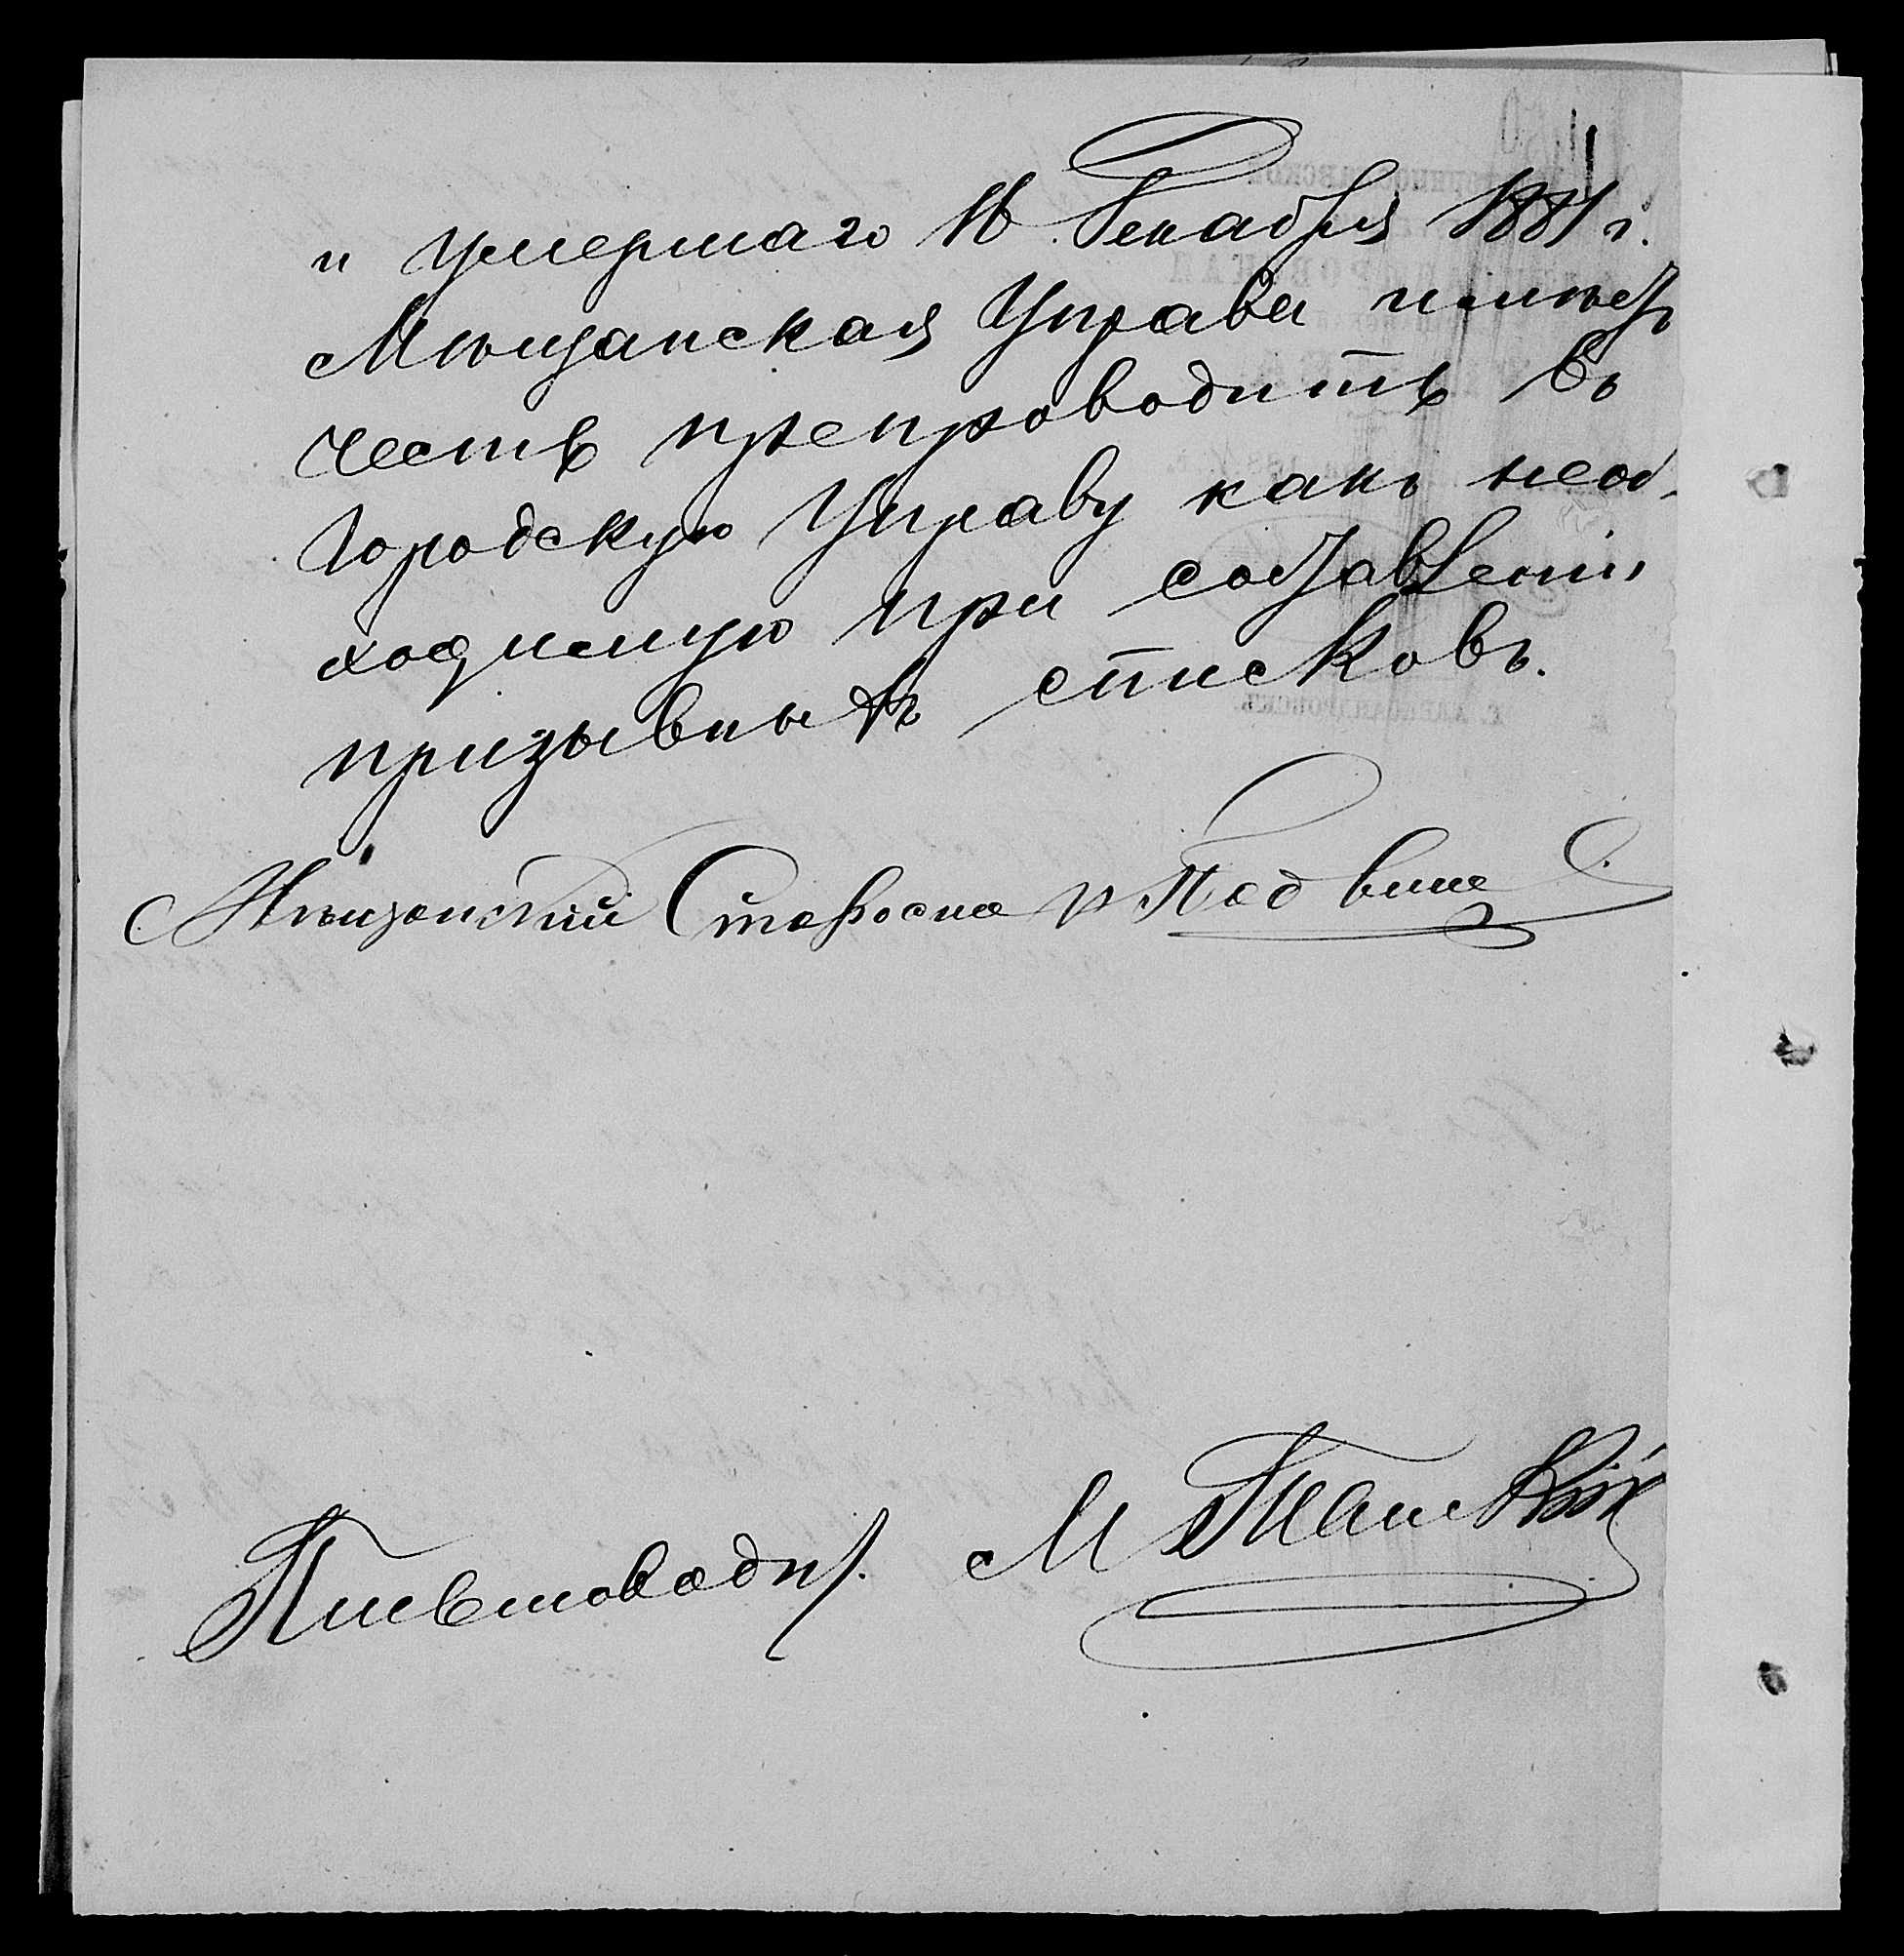 и умершаго 16 Декабря 1881 г.
Мѣщанская Управа имѣетъ
честь препроводить въ
Городскую Управу какъ необ-
ходимую при составленіи
призывныхъ списковъ.
Мѣщанскій Староста
Письмоводит. М